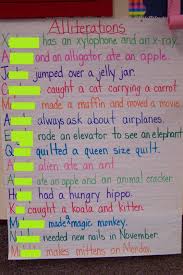 Alliterations
X has an xylophone and an x-ray.
A and an alligator ate an apple.
J jumped over a jelly jar.
C caught a cat carrying a carrot.
M made a muffin and moved a movie.
A always ask about airplanes.
E rode an elevator to see an elephant
Q quilted a queen size quilt.
A alien ate an ant
A ate an apple and an animal cracker
H had a hungry hippo.
K caught a koala and kitten.
M made a magic monkey.
N needed new nails in November.
M makes mittens on Monday.